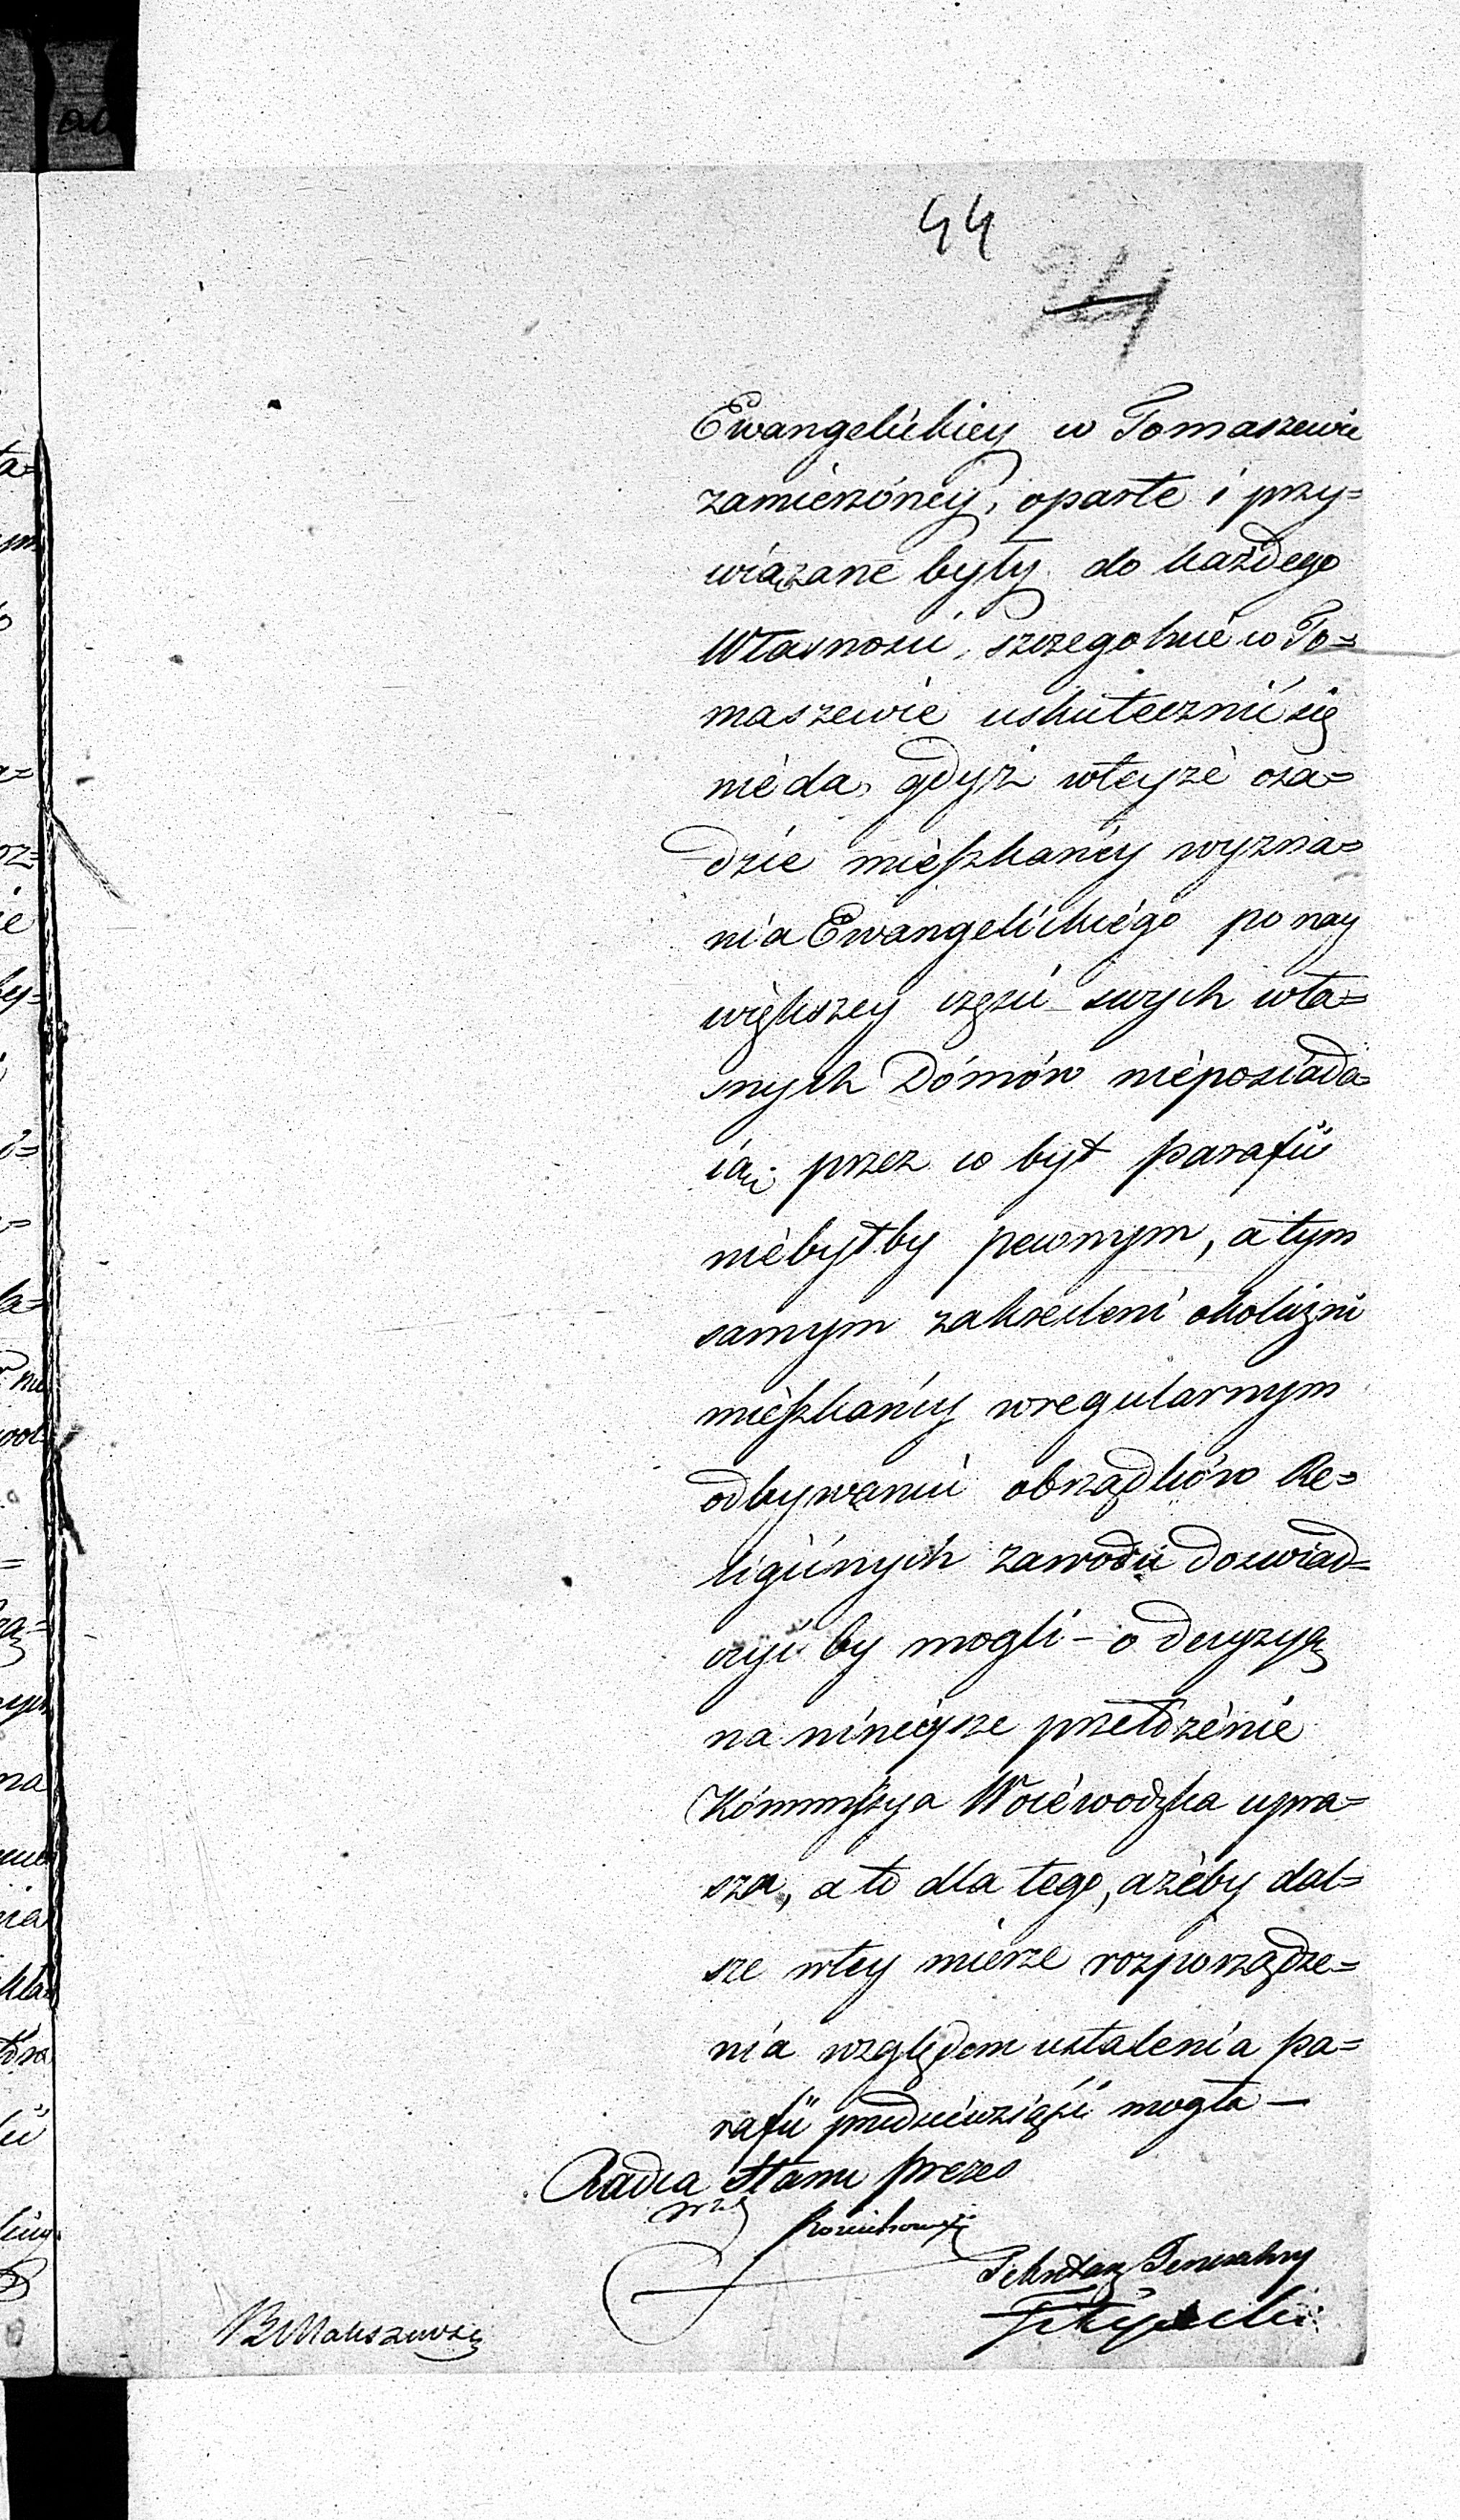 44
24
Ewangelickiey w Tomaszewie
zamierzóney, oparte i przy=
wiązane były do każdego
Własności, szczegolnie w To=
maszewie uskutecznić się
nieda, gdyż wteyże osa=
dzie mieszkańcy wyzna=
nia Ewangelickiego po nay
większey części swych wła=
snych Domów nieposiada=
ią; przez co byt parafii
niebyłby pewnym, a tym
samym zakreśleni okoliczni
mieszkańcy wregularnym
odbywaniu obrządków Re=
ligiinych zawodu doświad=
czyć by mogli – o decyzyą
na ninieysze przełożenie
Kommissya Woiewodzka upra=
sza, a to dla tego, ażeby dal=
sze wtey mierze rozporządze=
nia względem ustalenia pa=
rafii przedsięwziąść mogła —
Radca Stanu prezes
Sekretarz Generalny